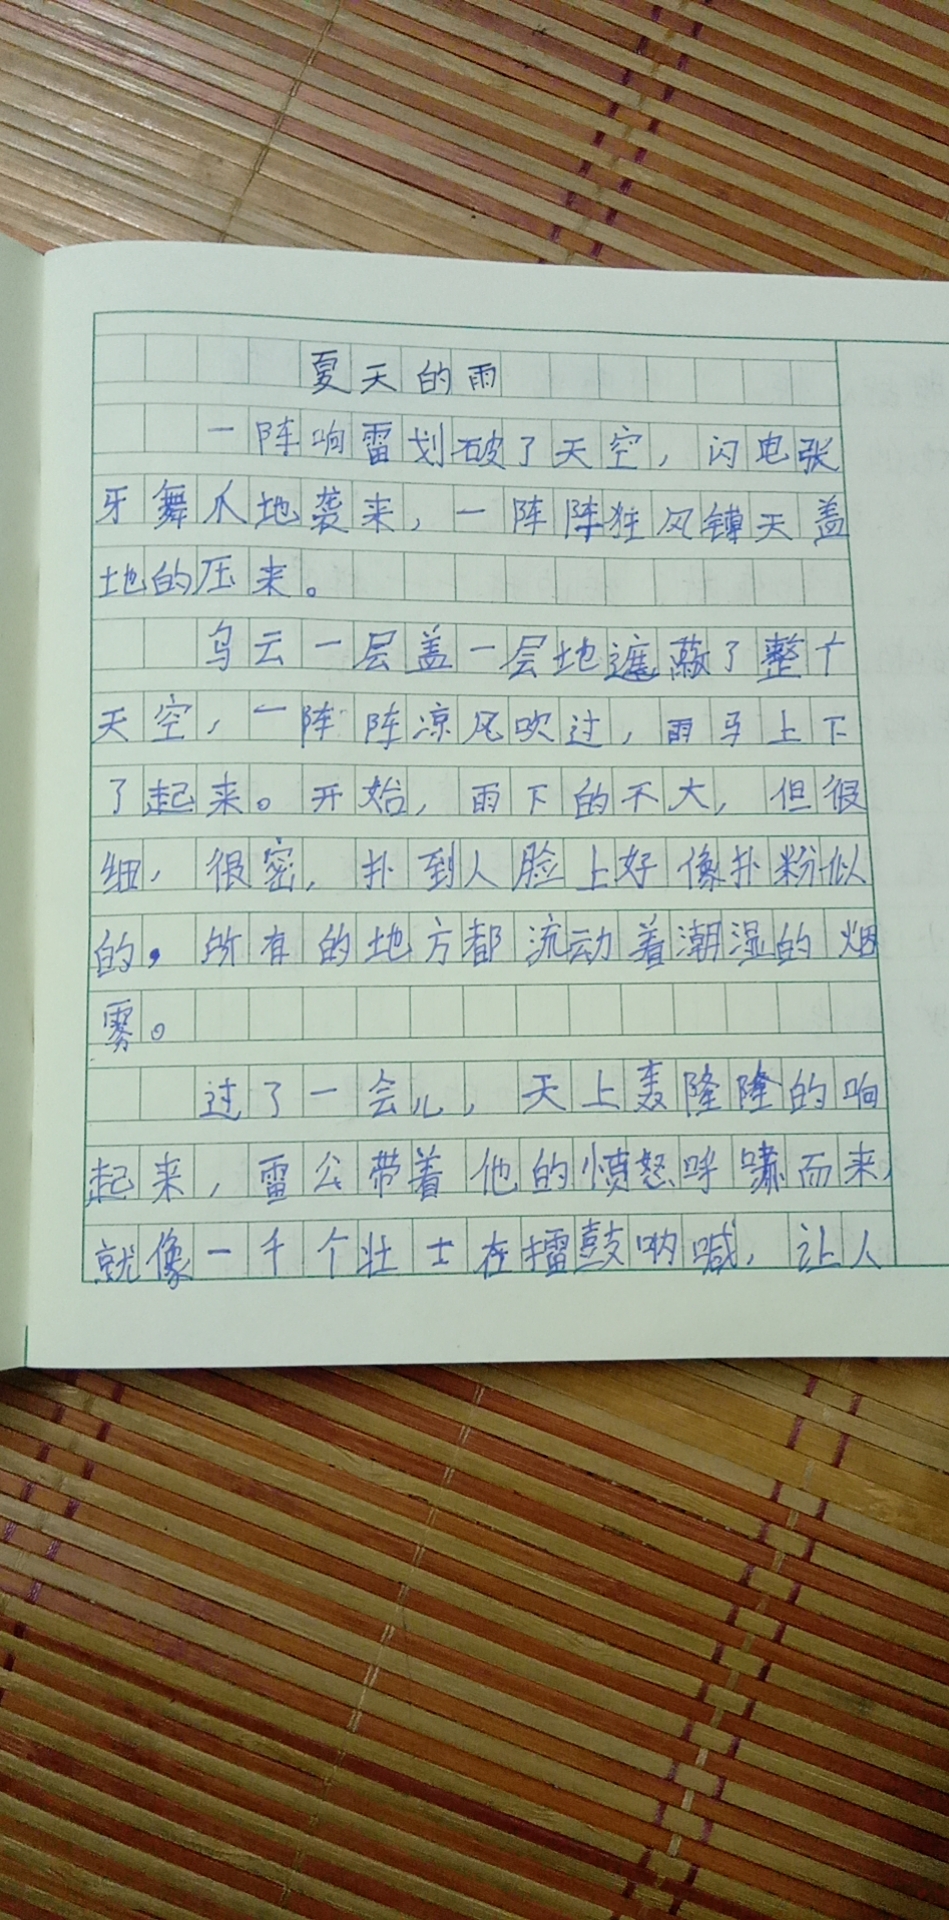 夏天的雨
一阵响雷划破了天空，闪电张
牙舞爪地袭来，一阵阵狂风铺天盖
地的压来。
乌云一层盖一层地遮蔽了整个
天空，一阵阵凉风吹过，雨马上下
了起来。开始，雨下的不大，但很
细，很密，扑到人脸上好像扑粉似
的，所有的地方都流动着潮湿的烟
雾。
过了一会儿，天上轰隆隆的响
起来，雷公带着他的愤怒呼啸而来，
就像一千个壮士在擂鼓呐喊，让人